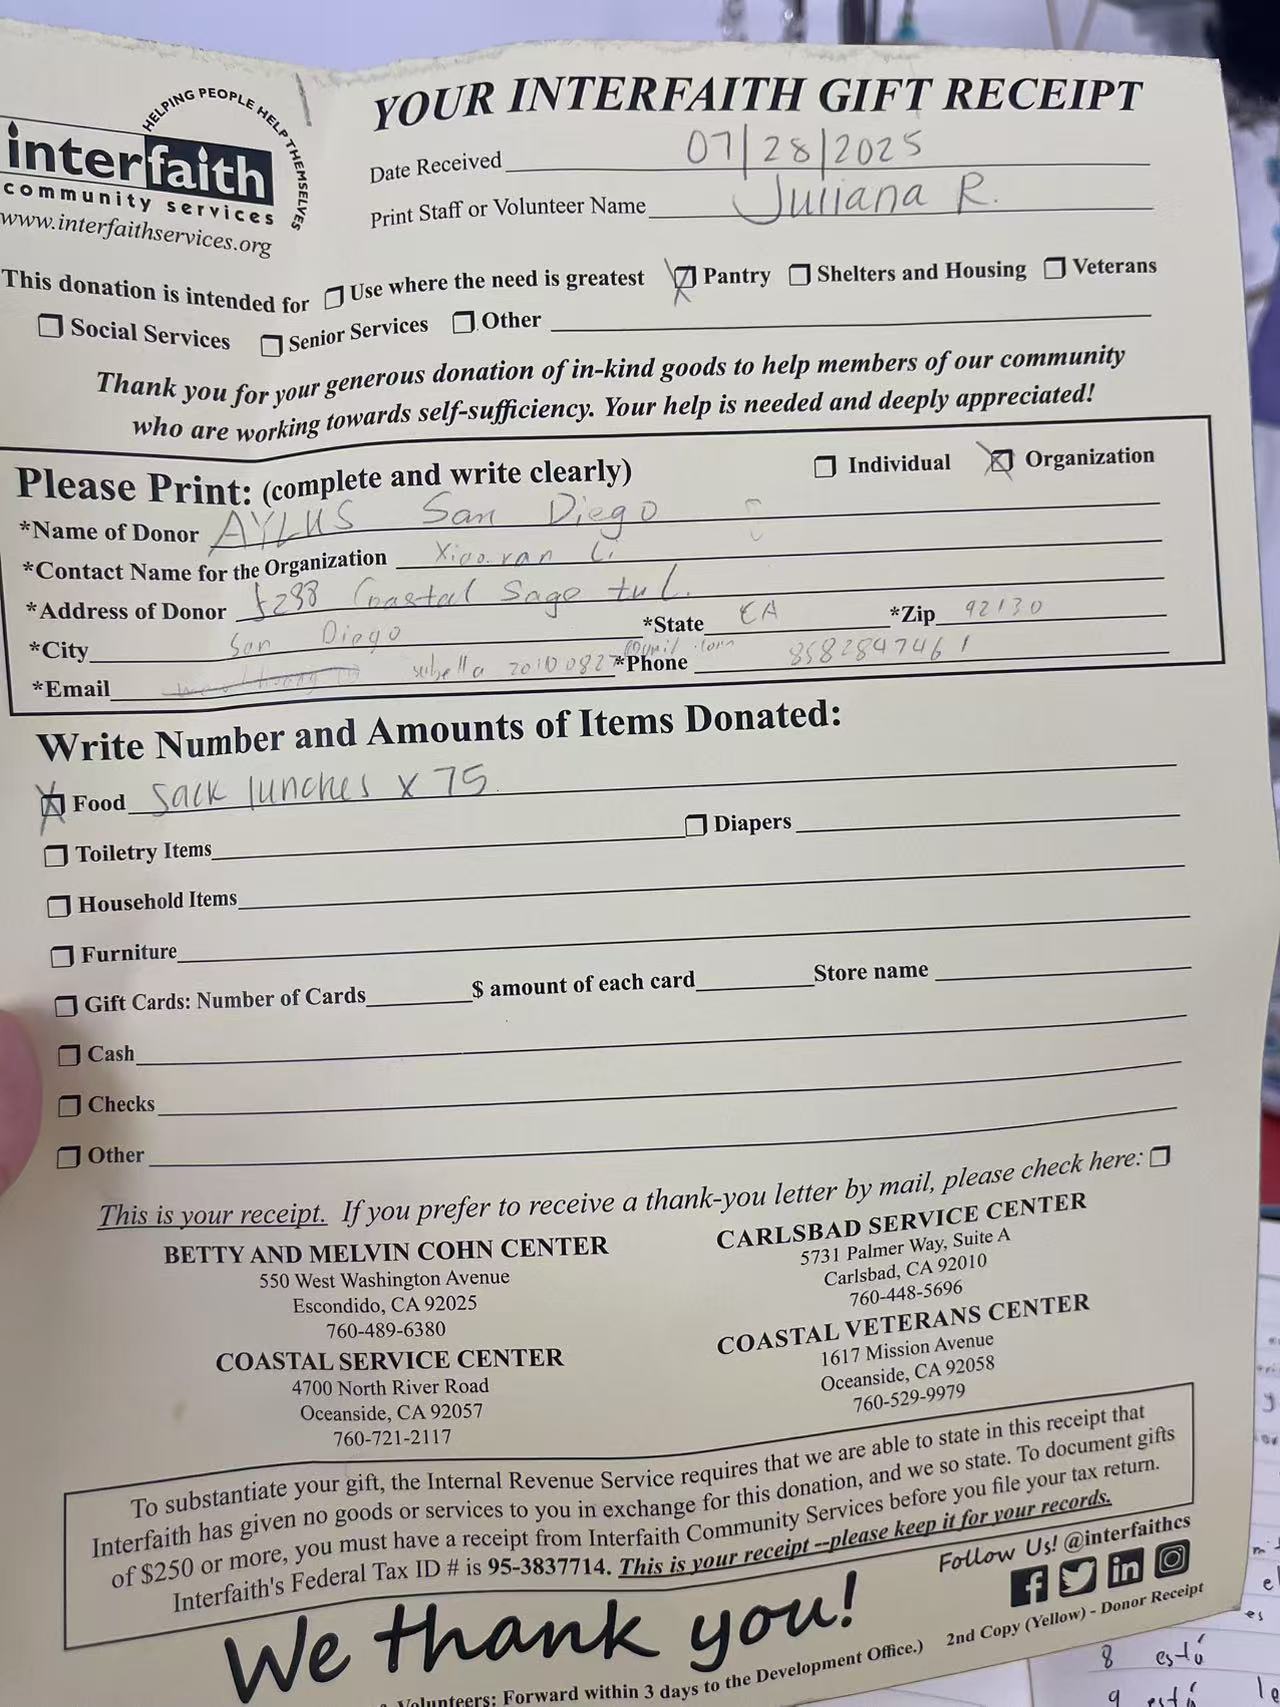 HELPING PEOPLE HELP THEMSELVES
interfaith
community services
www.interfaithservices.org
YOUR INTERFAITH GIFT RECEIPT
Date Received 07/28/2025
Print Staff or Volunteer Name Juliana R.
This donation is intended for Use where the need is greatest Pantry Shelters and Housing Veterans
Social Services Senior Services Other
Thank you for your generous donation of in-kind goods to help members of our community
who are working towards self-sufficiency. Your help is needed and deeply appreciated!
Please Print: (complete and write clearly) Individual Organization
*Name of Donor AYLUS San Diego
*Contact Name for the Organization Xiaoran L.
*Address of Donor Coastal Sage
*City San Diego *State CA *Zip 92130
*Email *Phone 8582847461
Write Number and Amounts of Items Donated:
Food sack lunches x 75
Toiletry Items Diapers
Household Items
Furniture
Gift Cards: Number of Cards $ amount of each card Store name
Cash
Checks
Other
This is your receipt. If you prefer to receive a thank-you letter by mail, please check here:
BETTY AND MELVIN COHN CENTER
550 West Washington Avenue
Escondido, CA 92025
760-489-6380
COASTAL SERVICE CENTER
4700 North River Road
Oceanside, CA 92057
760-721-2117
CARLSBAD SERVICE CENTER
5731 Palmer Way, Suite A
Carlsbad, CA 92010
760-448-5696
COASTAL VETERANS CENTER
1617 Mission Avenue
Oceanside, CA 92058
760-529-9979
To substantiate your gift, the Internal Revenue Service requires that we are able to state in this receipt that
Interfaith has given no goods or services to you in exchange for this donation, and we so state. To document gifts
of $250 or more, you must have a receipt from Interfaith Community Services before you file your tax return.
Interfaith's Federal Tax ID # is 95-3837714. This is your receipt --please keep it for your records.
We thank you!
Follow Us! @interfaithcs
2nd Copy (Yellow) - Donor Receipt
Volunteers: Forward within 3 days to the Development Office.)
8 está
9